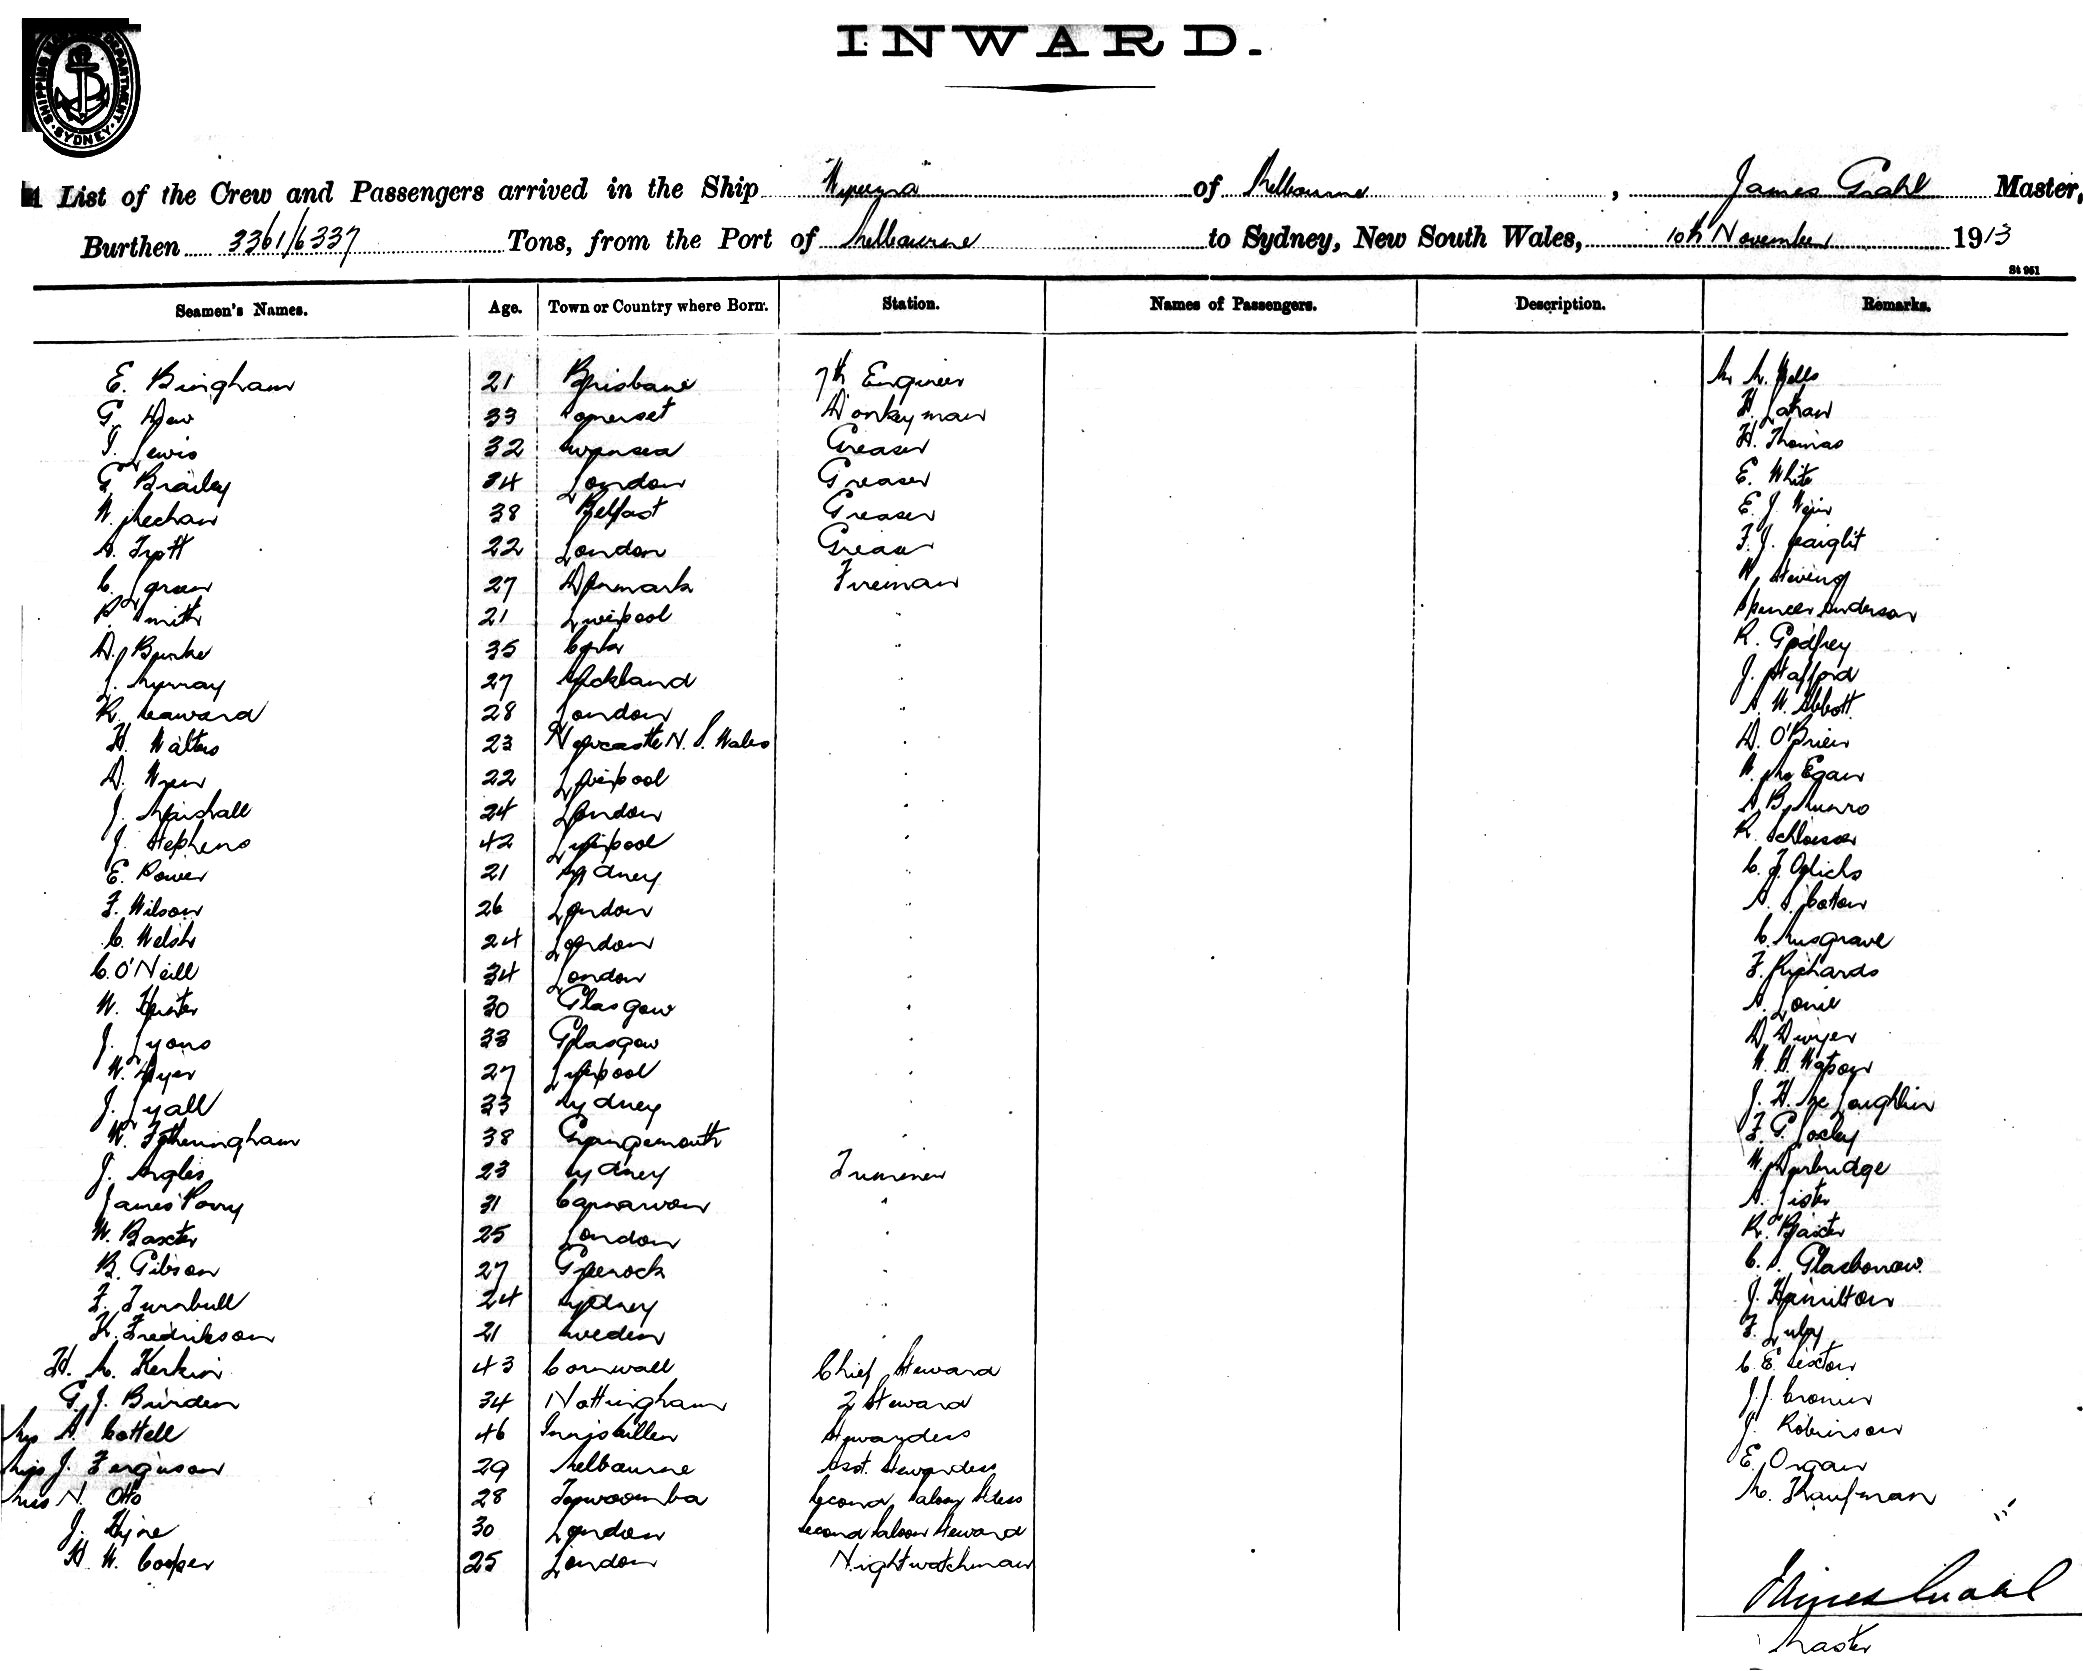 INWARD.
SHIPPING MASTER'S DEPARTMENT SYDNEY
A List of the Crew and Passengers arrived in the Ship Wyreema of Melbourne, James Grahl Master,
Burthen 3361/6337 Tons, from the Port of Melbourne to Sydney, New South Wales, 10th November 1913
St 951
Seamen's Names. Age. Town or Country where Born. Station. Names of Passengers. Description. Remarks.
E. Bingham 21 Brisbane 7th Engineer Wells
G. Dew 33 Somerset Donkeyman H. Latham
Lewis 32 Swansea Greaser H. Thomas
G. Brailey 34 London Greaser E. White
W. Meehan 38 Belfast Greaser E. J. Weir
A. Trott 22 London Greaser F. J.
C. 27 Denmark Fireman W. Stevens
P. Smith 21 Liverpool " Spencer Anderson
D. Burke 35 Cork " R. Godfrey
J. Murray 27 Auckland " J. Stafford
R. Caward 28 London " A. W. Abbott
H. Walters 23 Newcastle N. S. Wales " D. O'Brien
D. Wren 22 Liverpool " W. McEgan
J. Marshall 24 London " A. B. Munro
J. Stephens 42 Liverpool " R. Schlosser
E. Power 21 Sydney " C. F.
F. Wilson 26 London " A. S. Cotton
C. Welsh 24 London " C. Musgrave
C. O'Neill 34 London " F. Richards
W. Hunter 30 Glasgow " A. Lonie
J. Lyons 33 Glasgow " D. Dwyer
W. Dyer 27 Liverpool " W. H. Watson
J. Lyall 33 Sydney " J. H. McLoughlin
W. Fotheringham 38 Grangemouth " F. G. Loxley
J. Angles 23 Sydney Trimmer W. Durbridge
James Parry 31 Carnarvon " A. Lister
W. Baxter 25 London " R. Baxter
B. Gibson 27 Greenock " C. S. Glasbonow
F. Turnbull 24 Sydney " J. Hamilton
K. Fredrikson 21 Sweden " F. Luby
H. M. Kerkin 43 Cornwall Chief Steward C. E. Sexton
G. J. Burden 34 Nottingham 2 Steward J. J. Cronin
Mrs A. Cottell 46 Inniskillen Stewardess J. Robinson
Miss J. Ferguson 29 Melbourne Asst. Stewardess E. Organ
Miss N. Otto 28 Toowoomba Second Saloon Stdess M. Kaufman
J. Hyne 30 London Second Saloon Steward
H. W. Cooper 25 London Nightwatchman
James Grahl
Master